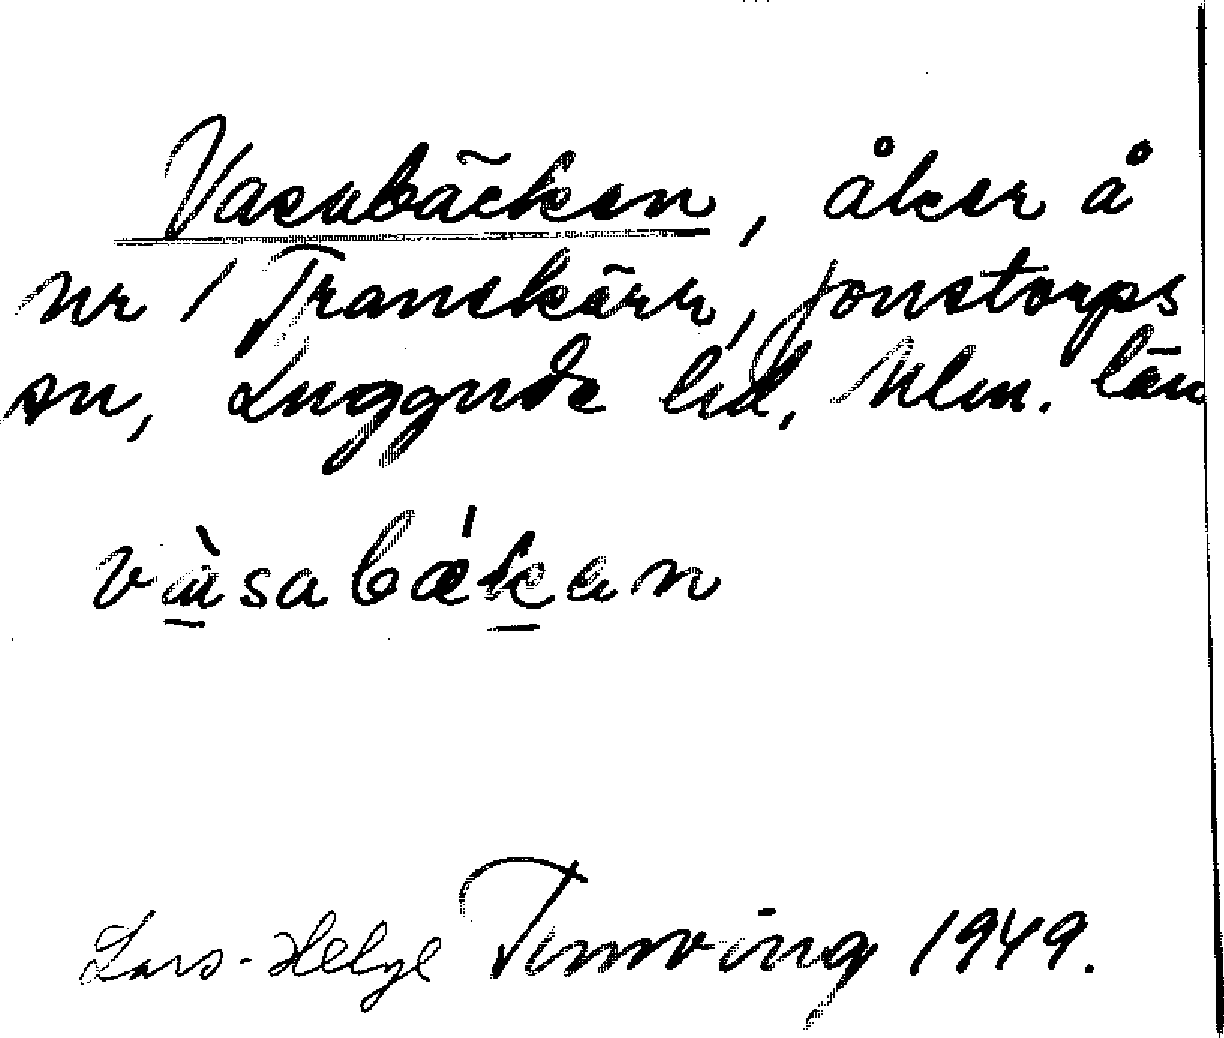 Vasabäcken, åker å
nr 1 Tranekärr, Jonstorps
sn, Luggude hd, Mlm. län
vàsabǽkan
Lars-Helge Temving 1949.